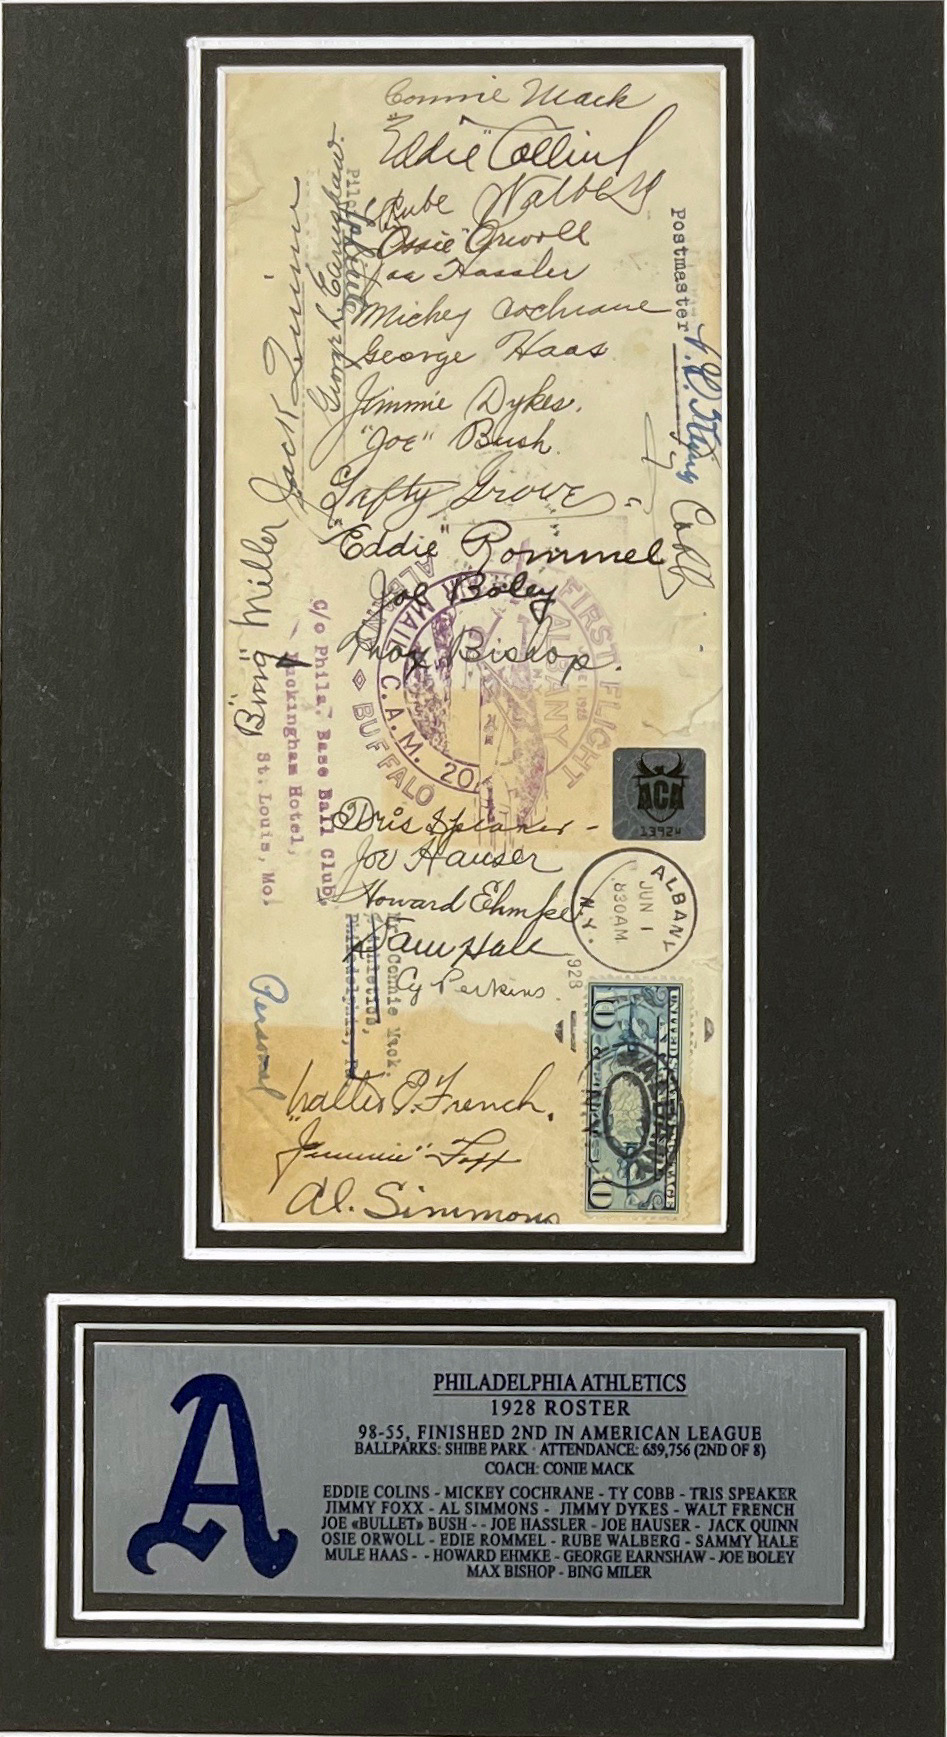 Connie Mack
"Eddie" Collins
Rube Walberg
"Ossie" Orwoll
Joe Hassler
Mickey Cochrane
George Haas
Jimmie Dykes.
"Joe" Bush
Lefty Grove
"Eddie" Rommel
Joe Boley
Max Bishop.
Tris Speaker
Joe Hauser
Howard Ehmke
Sam Hale
Cy Perkins
Walter E. French.
"Jimmie" Foxx
Al. Simmons
George L. Earnshaw.
Jack Quinn
"Bing" Miller
Ty Cobb
Postmaster
Pilot
c/o Phila. Base Ball Club,
Buckingham Hotel,
St. Louis, Mo.
Mr. Connie Mack.
Athletics,
Philadelphia, Pa
Personal
FIRST FLIGHT
ALBANY
N.Y.
AIR MAIL C.A.M. 20
ALBANY ◆ BUFFALO
ACA
1392H
ALBANY
JUN 1
830AM
N.Y.
1928
10 10
PHILADELPHIA ATHLETICS
1928 ROSTER
98-55, FINISHED 2ND IN AMERICAN LEAGUE
BALLPARKS: SHIBE PARK · ATTENDANCE: 689,756 (2ND OF 8)
COACH: CONIE MACK
EDDIE COLINS - MICKEY COCHRANE - TY COBB - TRIS SPEAKER
JIMMY FOXX - AL SIMMONS - JIMMY DYKES - WALT FRENCH
JOE «BULLET» BUSH - - JOE HASSLER - JOE HAUSER - JACK QUINN
OSIE ORWOLL - EDIE ROMMEL - RUBE WALBERG - SAMMY HALE
MULE HAAS - - HOWARD EHMKE - GEORGE EARNSHAW - JOE BOLEY
MAX BISHOP - BING MILER
A